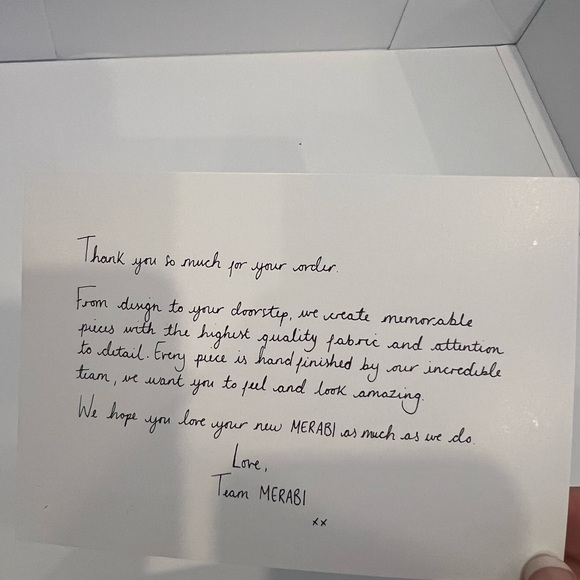 Thank you so much for your order.
From design to your doorstep, we create memorable
pieces with the highest quality fabric and attention
to detail. Every piece is hand finished by our incredible
team, we want you to feel and look amazing.
We hope you love your new MERABI as much as we do.
Love,
Team MERABI
xx